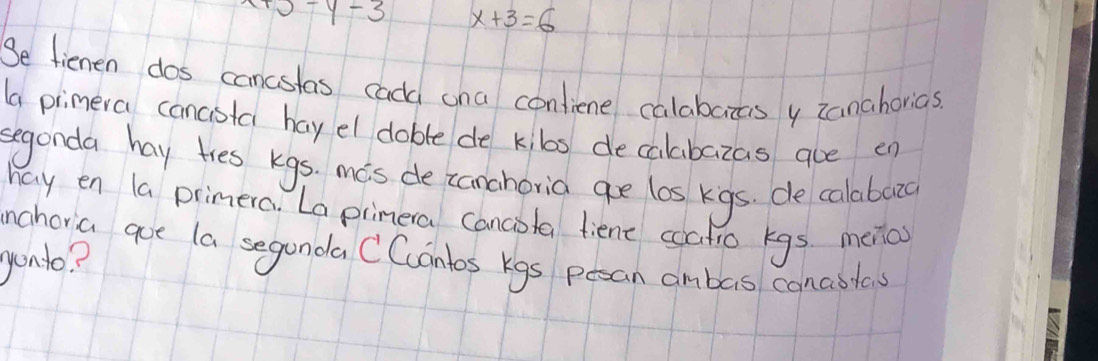 x+3-y-3 x+3=6
Se tienen dos canastas cada una contiene calabazas y zanahorias.
la primera canasta hay el doble de kilos de calabazas que en
segonda hay tres kgs. más de zanahoria que los kgs. de calabaza
hay en la primera. La primera canasta tiene coatro kgs menos
nahoria que la segunda C Cuántos kgs pesan ambas canastas
yunto?